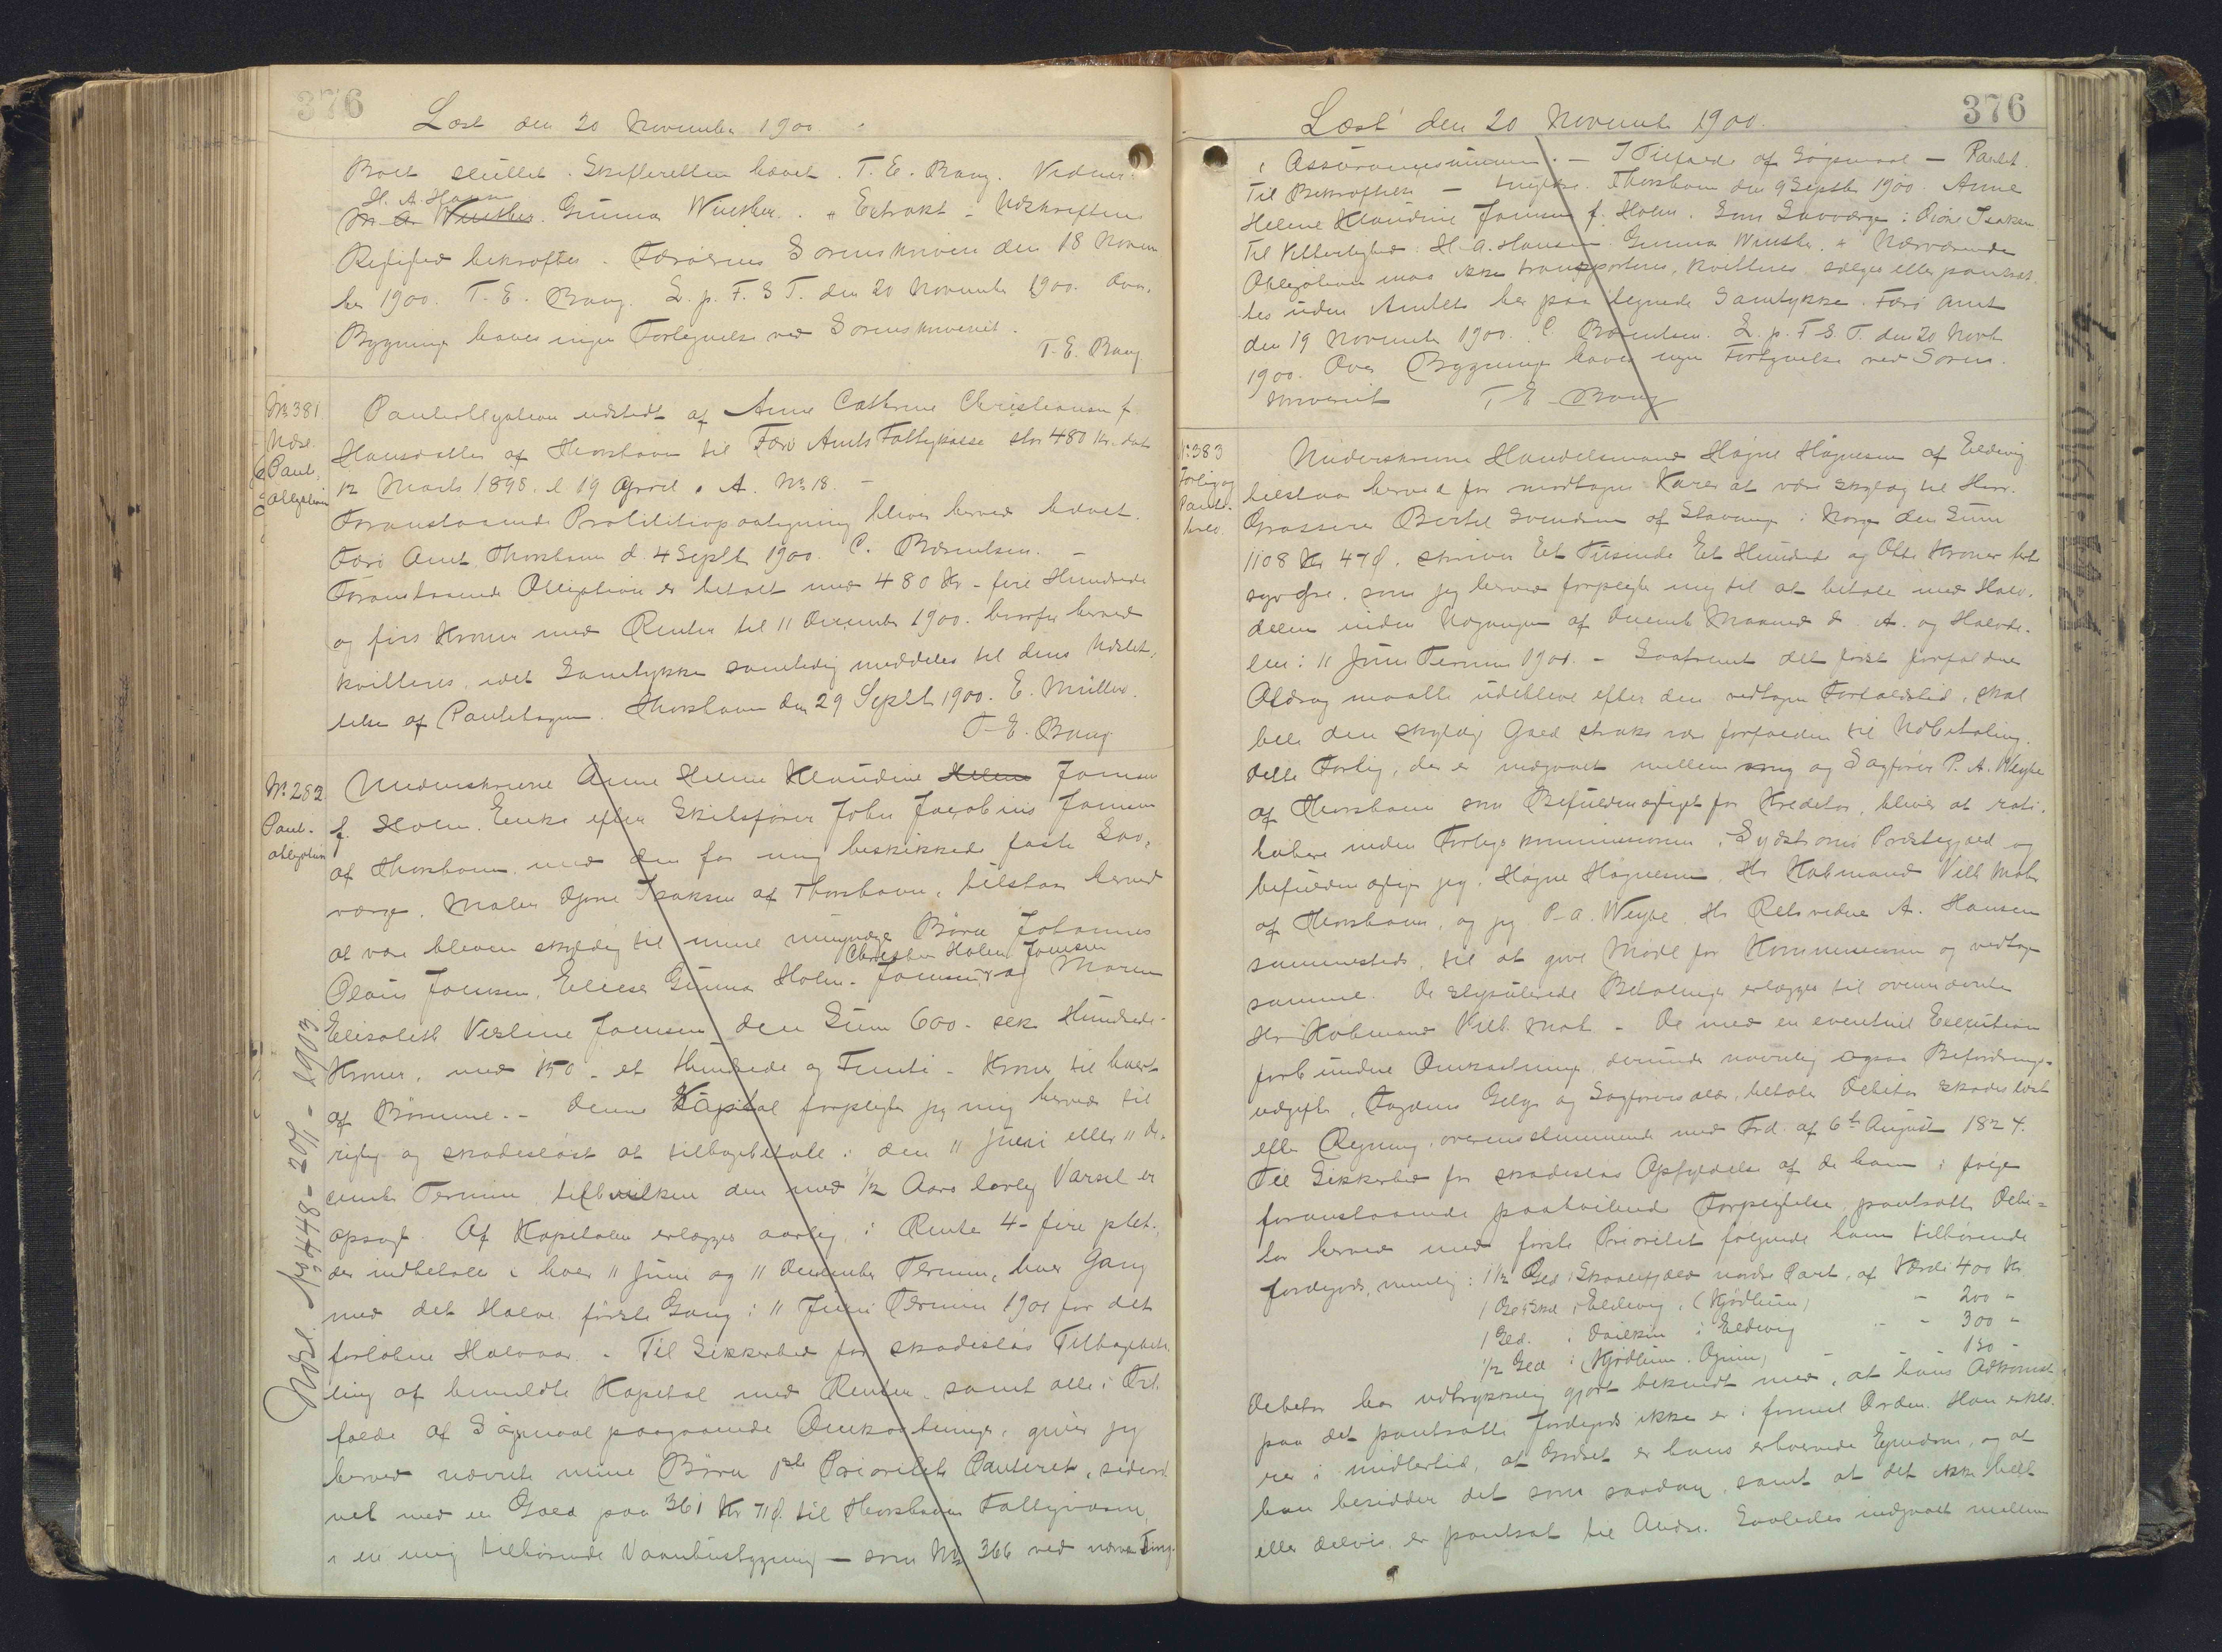 376
Læst den 20 November 1900.
Boet sluttet. Skifteretten hævet. T. E. Bang. Vidner:
H. A. Hansen
M. A. Winther. Gunnar Winther. Extrakt-Udskriftens
Rigtighed bekræftes. Færøernes Sorenskriveri den 18 Novem
ber 1900. T. E. Bang. L. p. F. S. T. den 20 November 1900. Over
Bygninger haves ingen Fortegnelse ved Sorenskriveriet.
T. E. Bang
No 381
Udsl.
Pant.
obligation
Pantobligation udstedt af Anne Cathrine Christiansen f.
Hansdatter af Thorshavn til Færø Amts Fattigkasse stor 480 Kr. dat
12 Marts 1898. l 19 April s. A. No 18. -
Foranstaaende Prohibitivpaategning bliver herved hævet.
Færø Amt Thorshavn d. 4 Septb 1900. C. Bærentsen. -
Foranstaaende Obligation er betalt med 480 Kr - fire Hundrede
og firs Kroner med Renter til 11 December 1900. hvorfor herved
kvitteres, idet Samtykke samtidig meddeles til dens Udslet-
telse af Pantebogen. Thorshavn den 29 Septb 1900. E. Müller.
T. E. Bang
No 282
Pant-
obligation
Underskrevne Anne Helene Klaudine Helene Joensen
f. Holm, Enke efter Skibsfører John Jacobius Joensen
af Thorshavn, med den for mig beskikkede faste Lav-
værge, Maler Djone Isaksen af Thorshavn, tilstaar herved
at være bleven skyldig til mine umyndige Børn Johannes
Christian Holm Joensen
Olaus Joensen, Elliese Gunna Holm-Joensen, og Maren
Elisabeth Vestine Joensen den Sum 600 - seks Hundrede -
Kroner, med 150 - et Hundrede og Femti - Kroner til hvert
af Børnene. - Denne Kapital forpligter jeg mig herved til
rigtig og skadesløst at tilbagebetale i den 11 Juni eller 11 De-
cember Termin, tilhvilken den med 1/2 Aars lovlig Varsel er
opsagt. Af Kapitalen erlægges aarlig i Rente 4 - fire pCt.,
der indbetales i hver 11 Juni og 11 December Termin, hver Gang
med det Halve første Gang i 11 Juni Termin 1901 for det
forløbne Halvaar. - Til Sikkerhed for skadesløs Tilbagebeta-
ling af bemeldte Kapital med Renter samt alle i Til-
fælde af Søgsmaal paagaaende Omkostninger, giver jeg
herved nævnte mine Børn 1ste Prioritets Panteret,
næst med en Gjæld paa 361 Kr 71 Ø. til Thorshavns Fattigvæsen,
i en mig tilhørende Vaaningsbygning - som No 366 ved nærv. Ting-
Udsl. No 448 - 20/11 - 1903.
376
Læst den 20 November 1900.
i Assurancesummen. - I Tilfælde af Søgsmaal - Pantet.
Til Bekræftelse - trykke. Thorshavn den 9 Septb 1900. Anne
Helene Klaudine Joensen f. Holm. Som Lavværge: Djone Isaksen
Til Vitterlighed: H. A. Hansen. Gunnar Winther. Nærværende
Obligation maa ikke transporteres, kvitteres, sælges eller pantsæt-
tes uden Amtets her paa tegnede Samtykke. Færø Amt
den 19 November 1900. C. Bærentsen. L. p. F. S. T. den 20 Novb
1900. Over Bygninger haves ingen Fortegnelse ved Soren-
skriveriet T. E. Bang
No 383
Forlig og
Pante-
brev.
Underskrevne Handelsmand Høgne Høgnesen af Eldevig
tilstaar herved for modtagne Varer at være skyldig til Herr.
Grosserer Bertel Svendsen af Stavanger i Norge den Sum
1108 Kr 47 Ø. skriver Et Tusende Et Hundrede og Otte Kroner førti
syv Øre, som jeg herved forpligter mig til at betale med Halv-
delen inden Udgangen af December Maaned d. A. og Halvde-
len i 11 Juni Termin 1901. - Saafremt det først forfaldne
Afdrag maatte udeblive efter den vedtagne Forfaldstid, skal
hele den skyldige Gjæld straks være forfalden til Udbetaling.
Dette Forlig, der er indgaaet mellem mig og Sagfører P. A. Weyhe
af Thorshavn som Befuldmægtiget for Kreditor, bliver at rati-
habere inden Forligskommissionen i Sydstrømø Præstegjæld og
befuldmægtiger jeg, Høgne Høgnesen, Hr Købmand Vilh Mohr
af Thorshavn, og jeg P. A. Weyhe, Hr Retsvidne A. Hansen
sammesteds, til at give Møde for Kommissionen og vedtage
samme. De stipulerede Betalinger erlægges til ovennævnte
Hr Købmand Vilh. Mohr. - De med en eventuel Execution
forbundne Omkostninger, derunder navnlig ogsaa Befordrings-
udgifter, Fogdens Gebyr og Sagførersalær, betaler Debitor skadesløst
efter Regning, overensstemmende med Frd. af 6te August 1824.
Til Sikkerhed for skadesløs Opfyldelse af de ham i følge
foranstaaende paahvilende Forpligtelse, pantsætter Debi-
tor herved med første Prioritet følgende ham tilhørende
Jordegods, nemlig: 1 1/2 Gld i Skaalefjeld nordre Part, af Værdi 400 Kr
1 Gld 5 Skd i Eldevig, - 200 "
1 Gld. i i Eldevig - - 300 "
1/2 Gld i - 150 -
Debitor har udtrykkelig gjort bekendt med, at hans Adkomst
paa det pantsatte Jordegods ikke er i formel Orden. Han erklæ-
rer i midlertid, at Godset er hans erhvervede Ejendom, og at
han besidder det som saadan, samt at det ikke helt
eller delvis er pantsat til Andre. Saaledes indgaaet mellem